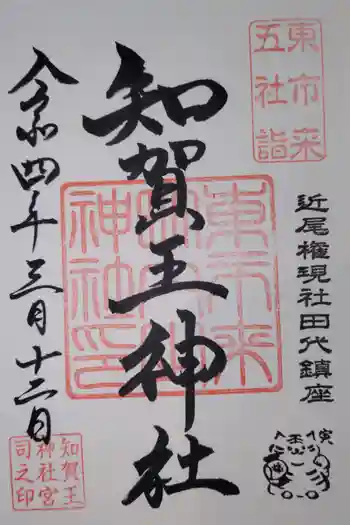 東市来
五社詣
知賀王神社
近尾権現社田代鎮座
令和四年三月十二日
知賀王
神社宮
司之印